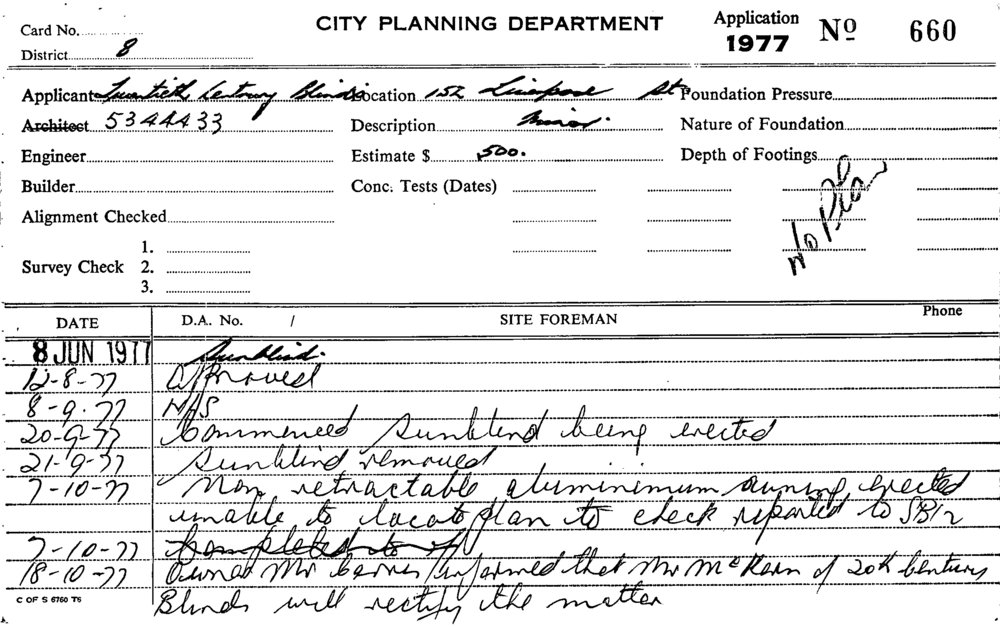 Card No.
CITY PLANNING DEPARTMENT
Application 1977 Nº 660
District 8
Applicant Twentieth Century Blinds Location 152 Liverpool St Foundation Pressure
Architect 5344433 Description Minor. Nature of Foundation
Engineer Estimate $ 500. Depth of Footings
Builder Conc. Tests (Dates)
N/o Plan
Alignment Checked
1.
Survey Check 2.
3.
DATE D.A. No. / SITE FOREMAN Phone
8 JUN 1977 Sunblind.
12-8-77 Approved
8-9-77 N/S
20-9-77 Commenced Sunblind being erected
21-9-77 Sunblind removed
7-10-77 Non retractable aluminimum awning erected
unable to locate plan to check reported to
7-10-77 Completed
18-10-77 Owner Mr informed that Mr McKern of 20th Century
C OF S 6760 T6
Blinds will rectify the matter